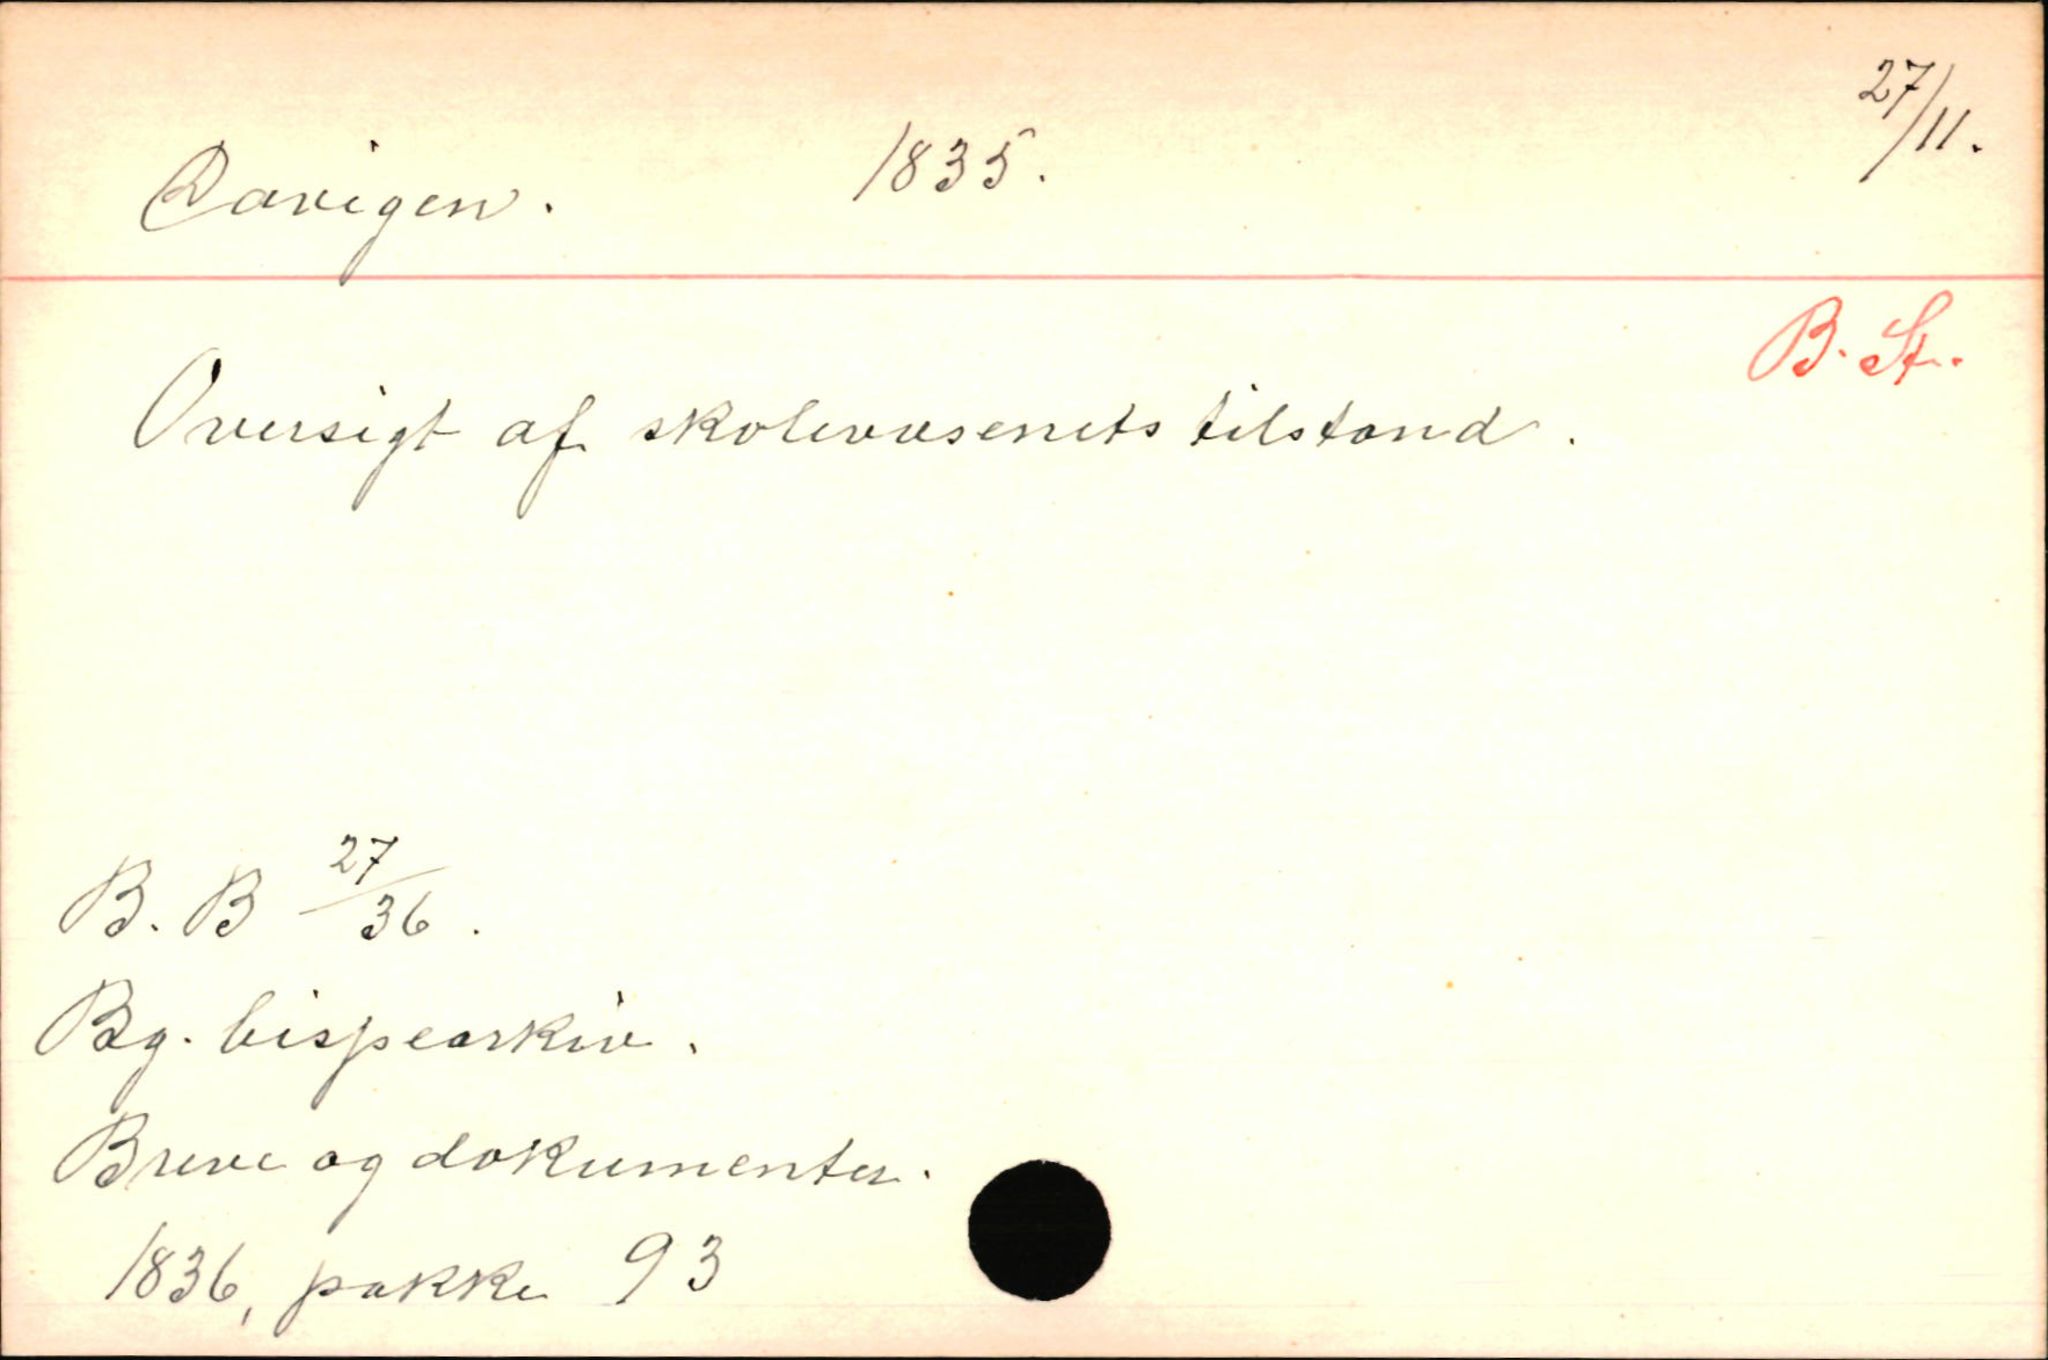 Davigen. 1835. 27/11.
B. St.
Oversigt af skolevæsenets tilstand.
B. B 27/36.
Bg. bispearkiv.
Breve og dokumenter.
1836, pakke 93